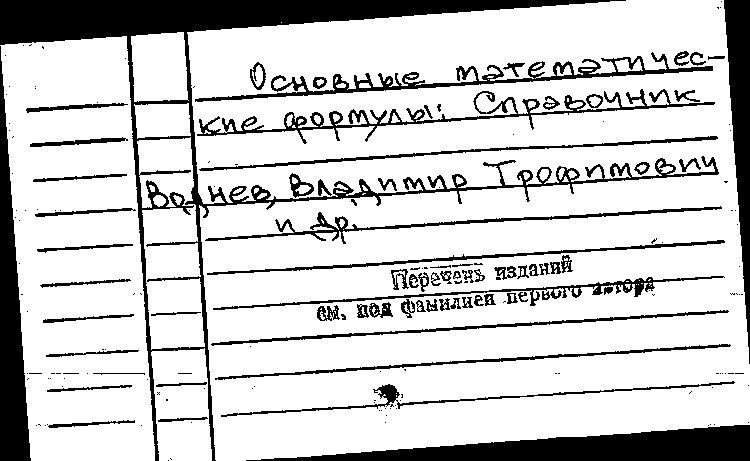 Основные математичес-
кие формулы: Справочник
Воднев, Владимир Трофимович
и др.
Перечень изданий
см. под фамилией первого автора